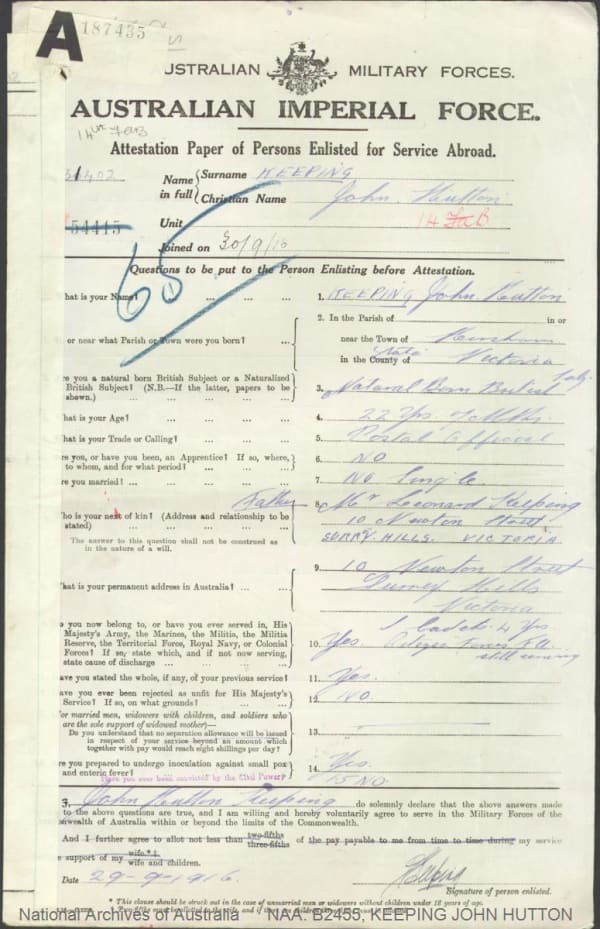 A
187435
USTRALIAN MILITARY FORCES.
AUSTRALIAN IMPERIAL FORCE.
Attestation Paper of Persons Enlisted for Service Abroad.
Name in full { Surname KEEPING
Christian Name John Hutton
54415 Unit 14 FAB
Joined on 30/9/16
65
Questions to be put to the Person Enlisting before Attestation.
hat is your Name? ... ... ... 1. KEEPING John Hutton
2. In the Parish of in or
or near what Parish or Town were you born? ... near the Town of Horsham
in the County of State Victoria
re you a natural born British Subject or a Naturalized
British Subject? (N.B.—If the latter, papers to be
shown.) ... ... ... ... ... 3. Natural Born British Subj.
hat is your Age? ... ... ... ... 4. 22 Yrs. 7 Mths.
hat is your Trade or Calling? ... ... ... 5. Postal Official
re you, or have you been, an Apprentice? If so, where,
to whom, and for what period? ... ... ... 6. NO
re you married? ... ... ... ... 7. No. Single
Father
ho is your next of kin? (Address and relationship to be
stated) ... ... ... ... ... 8. Mr Leonard Keeping
10 Newton Street
SURRY. HILLS. VICTORIA.
The answer to this question shall not be construed as
in the nature of a will.
hat is your permanent address in Australia? ... ... 9. 10 Newton Street
Surrey Hills
Victoria
o you now belong to, or have you ever served in, His
Majesty's Army, the Marines, the Militia, the Militia
Reserve, the Territorial Force, Royal Navy, or Colonial
Forces? If so, state which, and if not now serving,
state cause of discharge ... ... ... ... 10. Yes
Cadets 4 Yrs
still serving
ave you stated the whole, if any, of your previous service? 11. Yes.
ave you ever been rejected as unfit for His Majesty's
Service? If so, on what grounds? ... ... ... 12. NO.
For married men, widowers with children, and soldiers who
are the sole support of widowed mother)—
Do you understand that no separation allowance will be issued
in respect of your service beyond an amount which
together with pay would reach eight shillings per day? 13. —
re you prepared to undergo inoculation against small pox
and enteric fever? 14. Yes.
Have you ever been convicted by the Civil Power? 15 NO.
I, John Hutton Keeping do solemnly declare that the above answers made
to the above questions are true, and I am willing and hereby voluntarily agree to serve in the Military Forces of the
nwealth of Australia within or beyond the limits of the Commonwealth.
And I further agree to allot not less than two-fifths three-fifths of the pay payable to me from time to time during my service
e support of my wife.*† wife and children.
Date 29-9-1916. J Keeping
Signature of person enlisted.
* This clause should be struck out in the case of unmarried men or widowers without children under 18 years of age.
National Archives of Australia NAA: B2455, KEEPING JOHN HUTTON